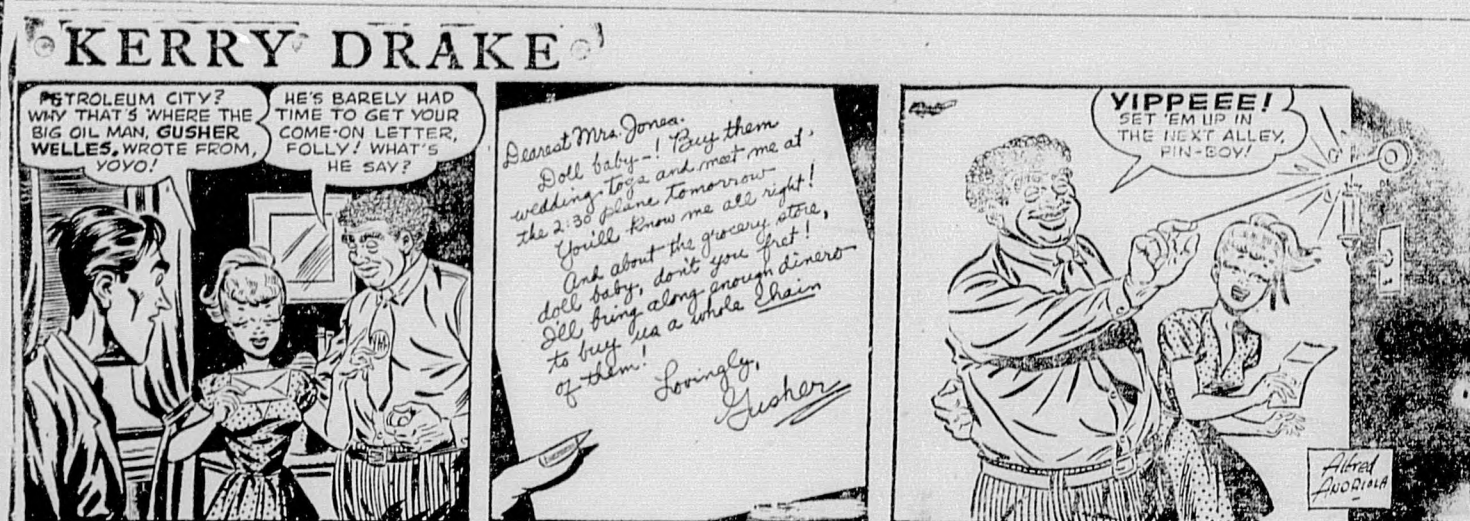 KERRY DRAKE
PETROLEUM CITY?
WHY THAT'S WHERE THE
BIG OIL MAN, GUSHER
WELLES, WROTE FROM,
YOYO!
HE'S BARELY HAD
TIME TO GET YOUR
COME-ON LETTER,
FOLLY! WHAT'S
HE SAY?
Dearest Mrs. Jones.
Doll baby—! Buy them
wedding togs and meet me at
the 2:30 plane tomorrow.
You'll know me all right!
And about the grocery store,
doll baby, don't you fret!
I'll bring along enough dinero
to buy us a whole chain
of them!
Lovingly,
Gusher
YIPPEEE!
SET 'EM UP IN
THE NEXT ALLEY,
PIN-BOY!
Alfred
ANDRIOLA